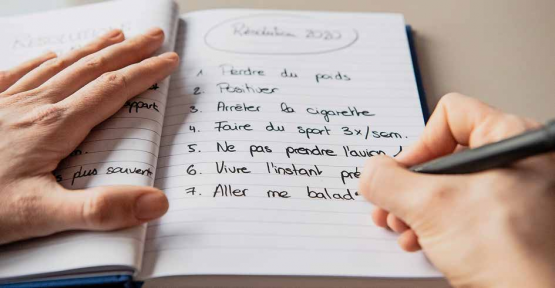 Résolution 2020
1. Perdre du poids
2. Positiver
3. Arrêter la cigarette
4. Faire du sport 3x/sem.
5. Ne pas prendre l'avion !
6. Vivre l'instant pré
7. Aller me balad
sport
s plus souvent